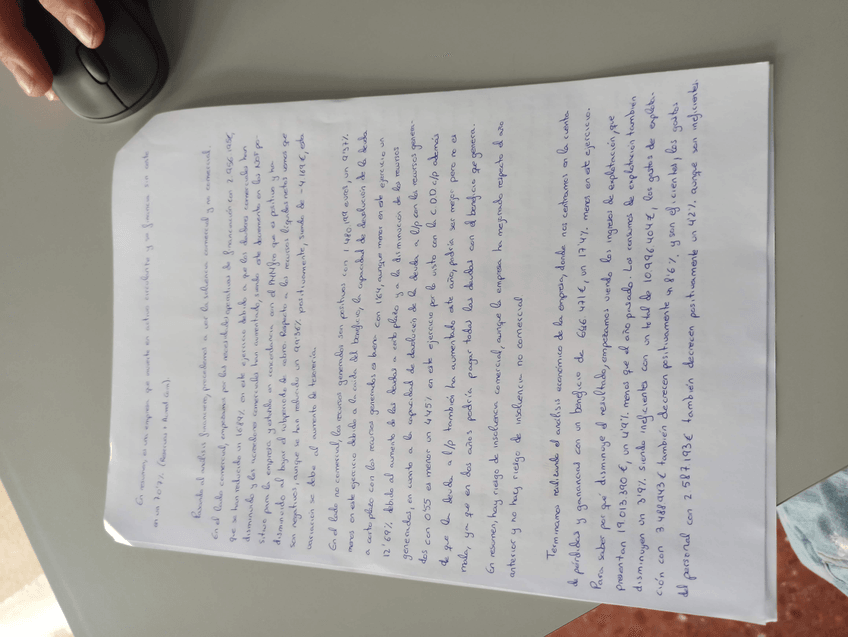 En resumen, es una empresa que invierte en activo corriente y se financia con
en un 70'7%. (Recursos
Pasando al análisis financiero, pasaremos a ver la solvencia comercial y no comercial.
En el lado comercial, empezamos por las necesidades operativas de financiación con
que se han reducido un 16'84% en este ejercicio debido a que los deudores comerciales han
disminuido y los acreedores comerciales han aumentado, siendo este decremento en las NOF po-
sitivo para la empresa y estando en concordancia con el PMNfco que es positivo y ha
disminuido al bajar el subperiodo de cobro. Respecto a los recursos líquidos netos vemos que
son negativos, aunque se han reducido un 99'36% positivamente, siendo de -4.189€, esta
variación se debe al aumento de tesorería.
En el lado no comercial, los recursos generados son positivos con 1.480.199 euros, un 9'37%
menos en este ejercicio debido a la caída del beneficio, la capacidad de devolución de la deuda
a corto plazo con los recursos generados es buena con 1'64, aunque menor en este ejercicio un
12'69% debido al aumento de las deudas a corto plazo y a la disminución de los recursos
generados, en cuanto a la capacidad de devolución de la deuda a l/p con los recursos genera-
dos con 0'55 es menor un 44'5% en este ejercicio por lo visto con la C.D.D c/p además
de que la deuda a l/p también ha aumentado este año, podría ser mejor pero no es
mala, ya que en dos años podría pagar todas las deudas con el beneficio que genera.
En resumen, hay riesgo de insolvencia comercial, aunque la empresa ha mejorado respecto al año
anterior y no hay riesgo de insolvencia no comercial.
Terminamos realizando el análisis económico de la empresa, donde nos centramos en la cuenta
de pérdidas y ganancias con un beneficio de 646.471€, un 17'47% menos en este ejercicio.
Para saber por qué disminuye el resultado, empezamos viendo los ingresos de explotación, que
presentan 19.013.390€, un 4'9% menos que el año pasado. Los consumos de explotación también
disminuyen un 3'9% siendo ineficientes con un total de 10.996.404€, los gastos de explota-
ción con 3.488.943€ también decrecen positivamente un 8'6% y son eficientes, los gastos
del personal con 2.587.193€ también decrecen positivamente un 4'2% aunque son ineficientes.